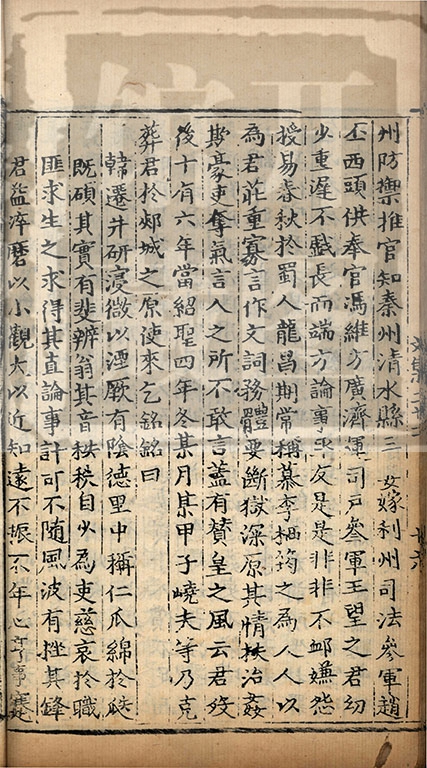 州防禦推官知秦州清水縣三女嫁利州司法參軍趙
丕西頭供奉官馮維方廣濟軍司戶參軍王望之君幼
少重遲不戲長而端方論事取友是是非非不邮嫌怨
授易春秋於蜀人龍昌期常稱慕李栖筠之為人人以
為君莊重寡言作文詞務體要斷獄深原其情扶治姦
欺豪吏奪氣言人之所不敢言蓋有贊皇之風云君歿
後十有六年當紹聖四年冬某月某甲子嶢夫等乃克
葬君於郟城之原使來乞銘銘曰
韓遷井研寖微以湮厥有陰德里中稱仁瓜綿於瓞
既碩其實有斐辨翁其音秩秩自少為吏慈哀於職
匪求生之求得其直論事計可不隨風波有挫其鋒
君益淬磨以小觀大以近知遠不振不年心亨事蹇